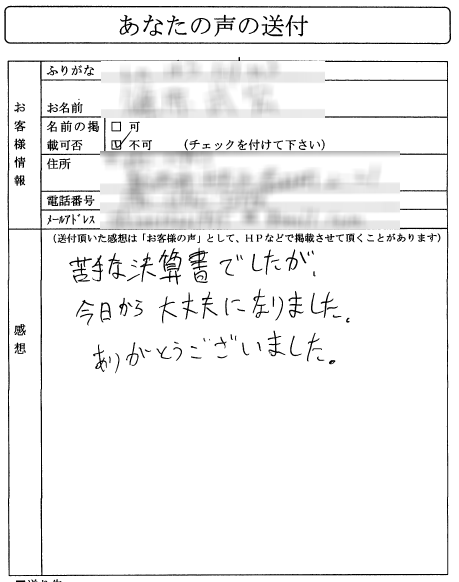 あなたの声の送付
ふりがな
お客様情報
お名前
名前の掲載可否
□ 可
☑ 不可 (チェックを付けて下さい)
住所
電話番号
メールアドレス
(送付頂いた感想は「お客様の声」として、HPなどで掲載させて頂くことがあります)
感想
苦手な決算書でしたが、
今日から大丈夫になりました。
ありがとうございました。